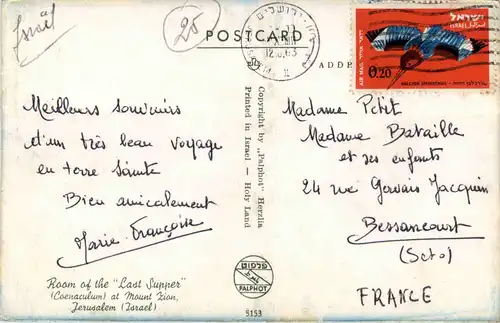 Israël
25
POSTCARD
12.6.63
ישראל
ISRAEL
AIR MAIL
0.20
HALCYON SMYRNENSIS
ADDRE
Meilleurs souvenirs
d'un très beau voyage
en terre sainte
Bien amicalement
Marie-Françoise
Room of the "Last Supper"
(Coenaculum) at Mount Zion,
Jerusalem (Israel)
Copyright by „Palphot" Herzlia
Printed in Israel — Holy Land
פלפוט
PALPHOT
5153
Madame Petit
Madame Bataille
et ses enfants
24 rue Gervais Jacquin
Bessancourt
(S et O)
FRANCE